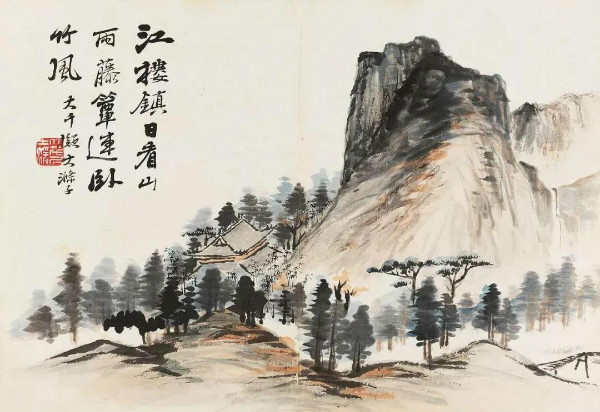 江樓鎮日看山
雨藤簟連卧
竹風
大千擬大滌子